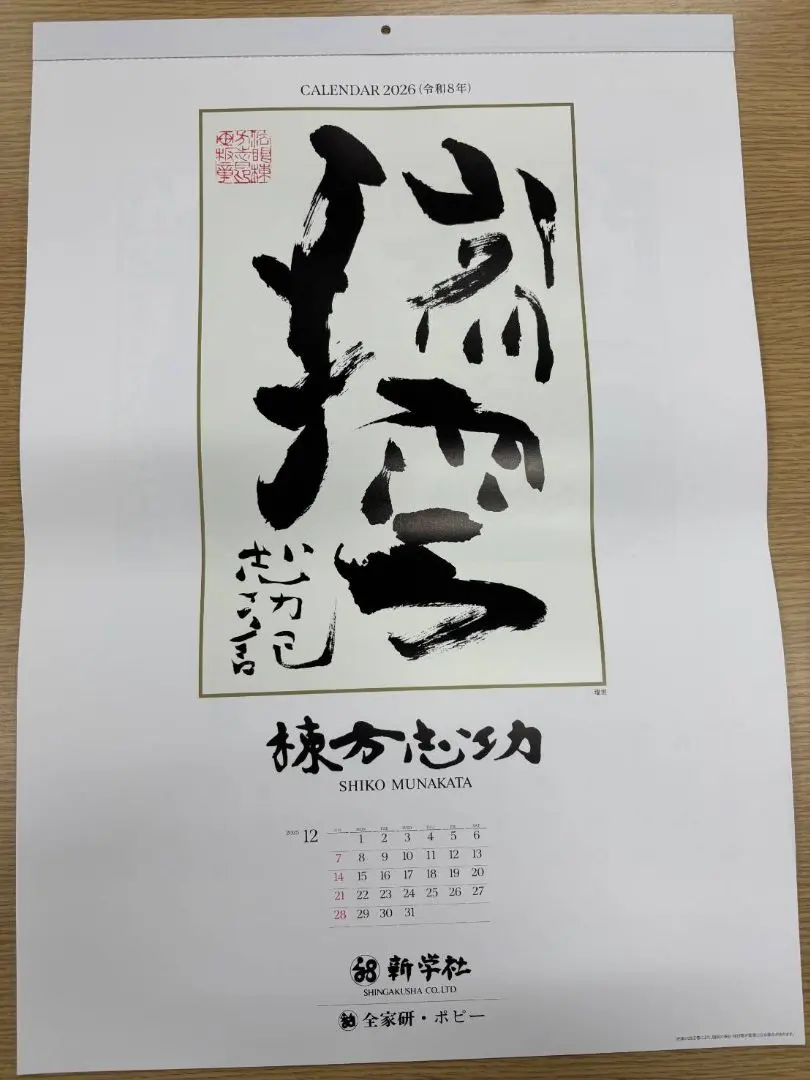 CALENDAR 2026 (令和8年)
瑞雲
瑞雲
棟方志功
SHIKO MUNAKATA
2025 12
SUN MON TUE WED THU FRI SAT
1 2 3 4 5 6
7 8 9 10 11 12 13
14 15 16 17 18 19 20
21 22 23 24 25 26 27
28 29 30 31
新学社
SHINGAKUSHA CO.,LTD
全家研・ポピー